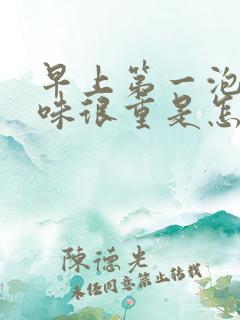 早上第一泡
味很重是怎
陳德光
未经同意禁止转载